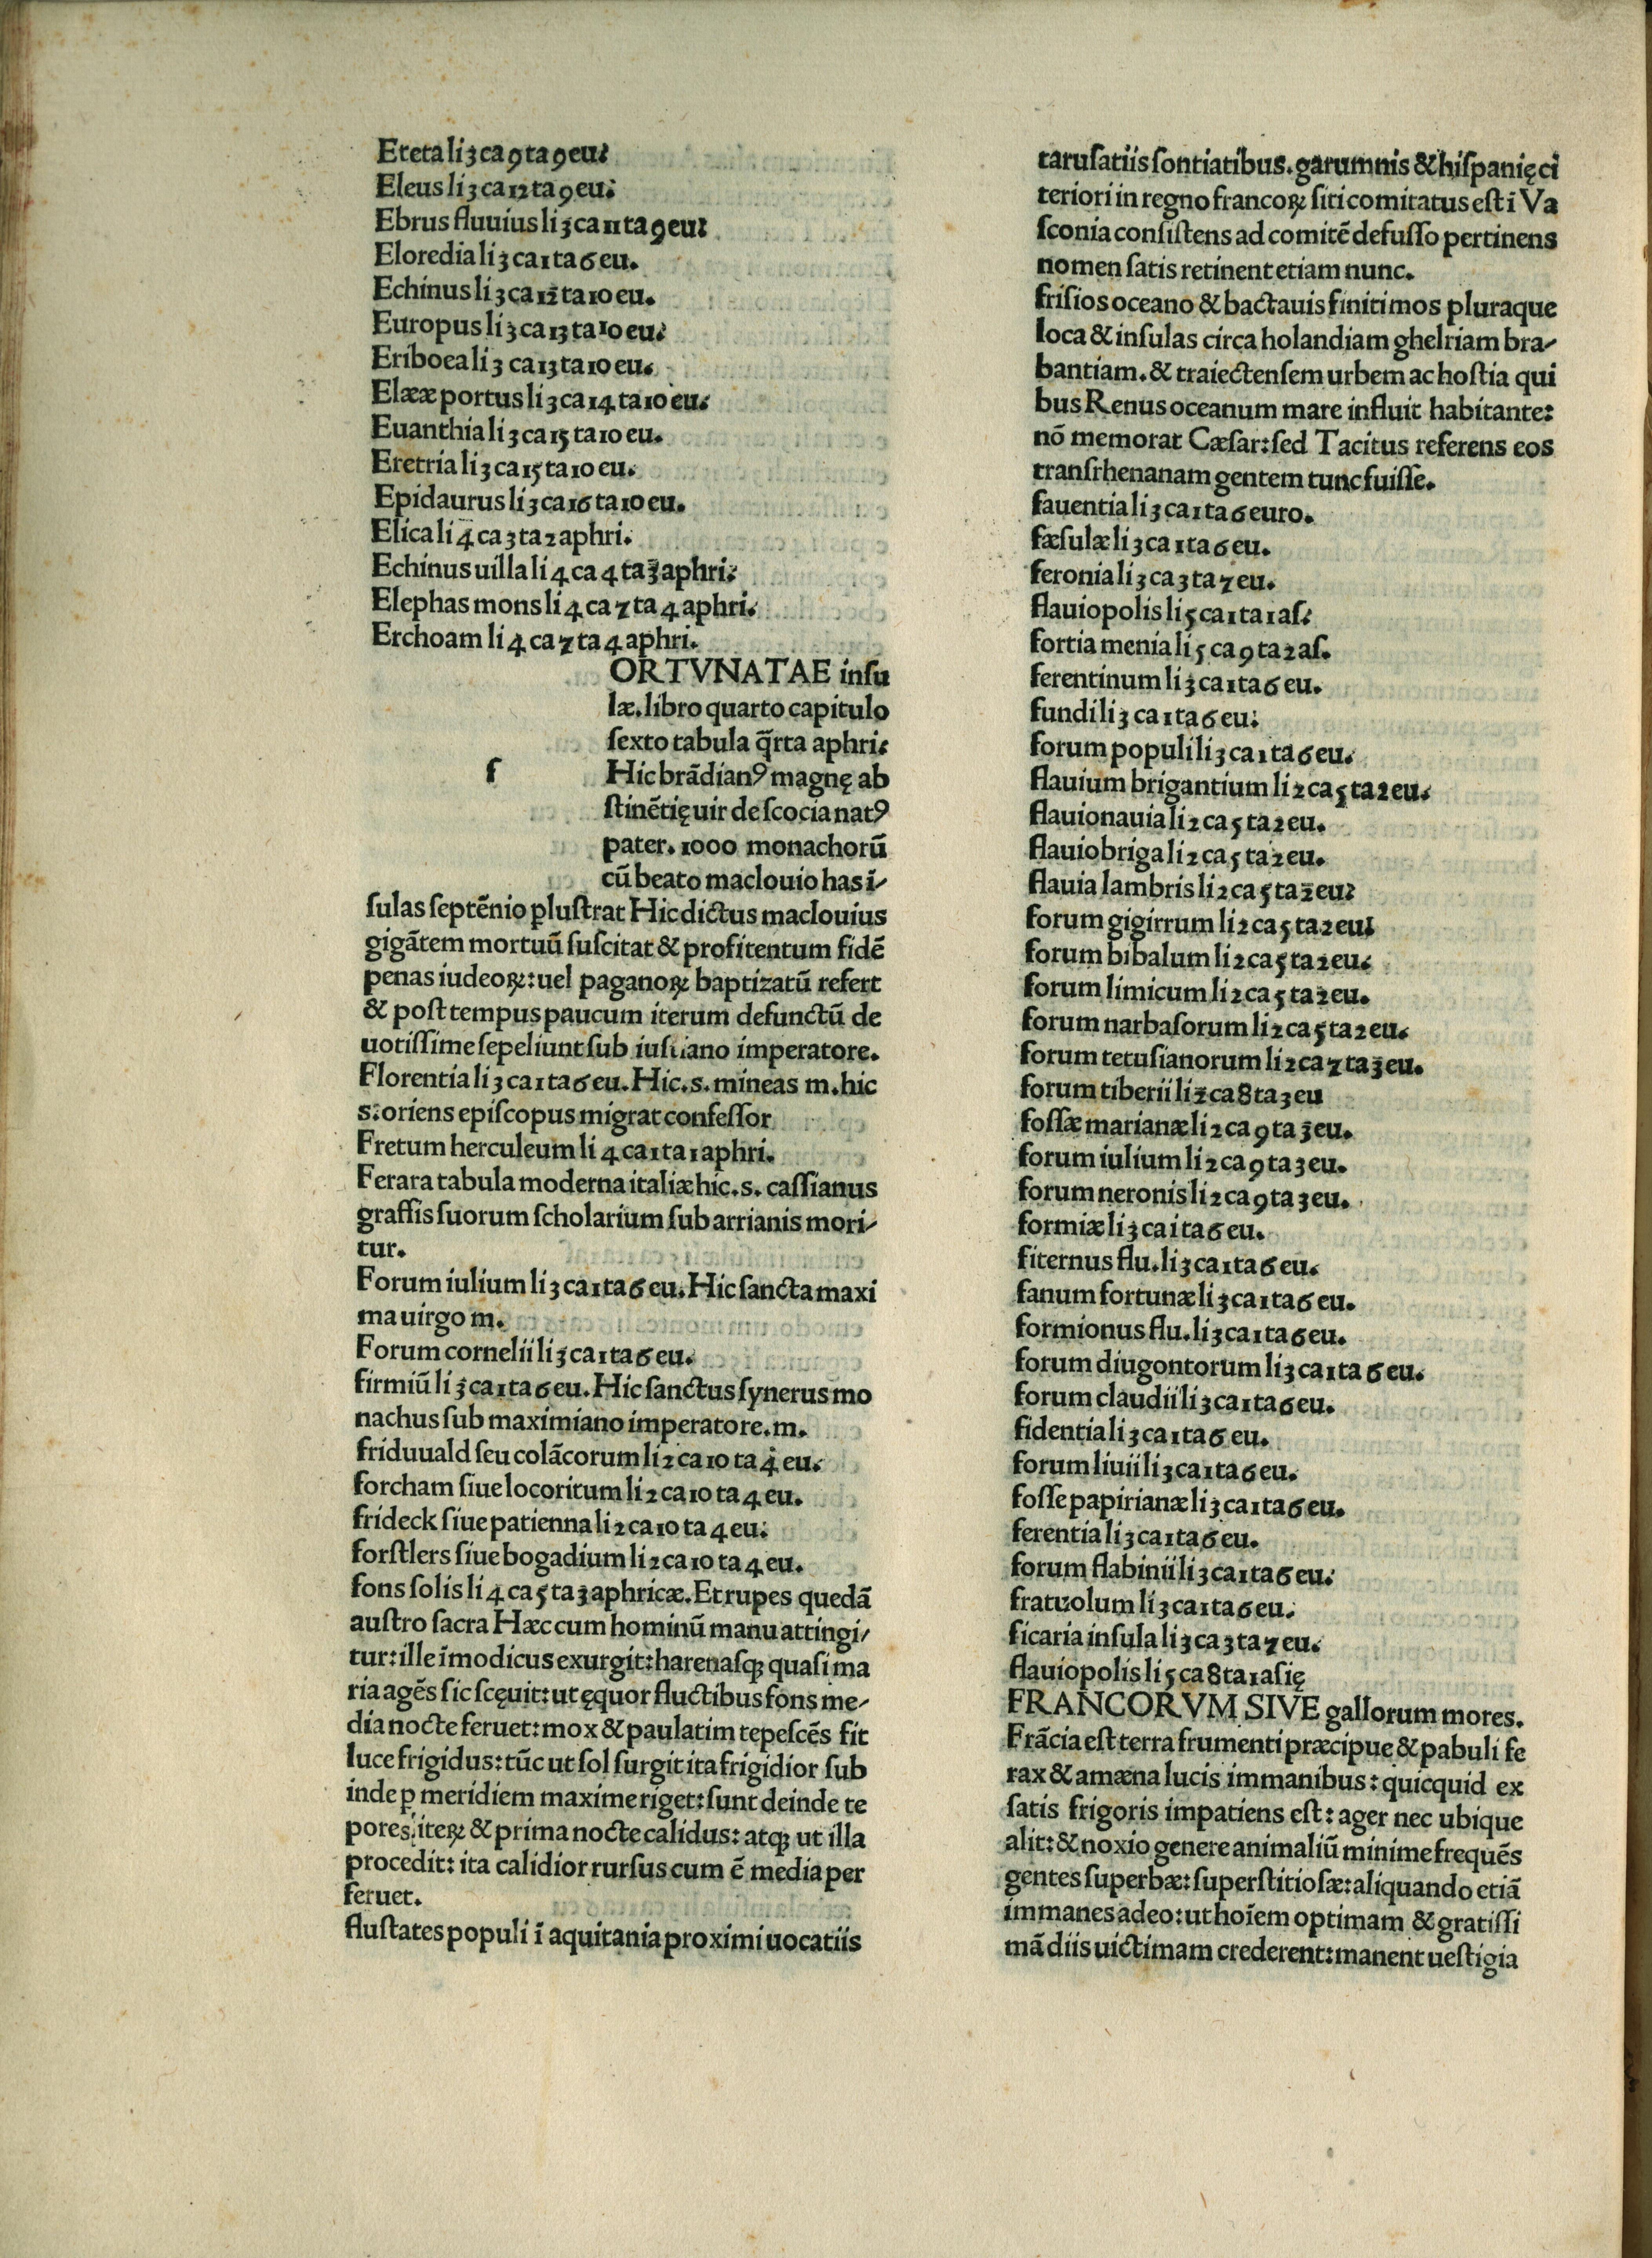 Ereta li 3 ca 9 ta 9 eu:
Eleus li 3 ca 12 ta 9 eu:
Ebrus fluuius li 3 ca 11 ta 9 eu:
Eloredia li 3 ca 1 ta 6 eu.
Echinus li 3 ca 12 ta 10 eu.
Europus li 3 ca 13 ta 10 eu:
Eriboea li 3 ca 13 ta 10 eu.
Elææ portus li 3 ca 14 ta 10 eu.
Euanthia li 3 ca 15 ta 10 eu.
Eretria li 3 ca 15 ta 10 eu.
Epidaurus li 3 ca 16 ta 10 eu.
Elica li 4 ca 3 ta 2 aphri.
Echinus uilla li 4 ca 4 ta 3 aphri:
Elephas mons li 4 ca 7 ta 4 aphri.
Erchoam li 4 ca 7 ta 4 aphri.
ORTVNATAE inſu
læ. libro quarto capitulo
ſexto tabula q̄rta aphri.
f Hic brādianꝰ magnę ab
ſtinētię uir de ſcocia natꝰ
pater. 1000 monachorū
cū beato maclouio has ī-
ſulas ſeptēnio ꝑluſtrat Hic dictus maclouius
gigātem mortuū ſuſcitat & profitentum fidē
penas iudeoꝝ: uel paganoꝝ baptizatū refert
& poſt tempus paucum iterum defunctū de
uotiſſime ſepeliunt ſub iuſtiano imperatore.
Florentia li 3 ca 1 ta 6 eu. Hic. s. mineas m. hic
s: oriens epiſcopus migrat confeſſor
Fretum herculeum li 4 ca 1 ta 1 aphri.
Ferara tabula moderna italiæ hic. s. caſſianus
graffis ſuorum ſcholarium ſub arrianis mori-
tur.
Forum iulium li 3 ca 1 ta 6 eu. Hic ſancta maxi
ma uirgo m.
Forum cornelii li 3 ca 1 ta 6 eu.
firmiū li 3 ca 1 ta 6 eu. Hic ſanctus ſynerus mo
nachus ſub maximiano imperatore. m.
friduuald ſeu colācorum li 2 ca 10 ta 4 eu.
forcham ſiue locoritum li 2 ca 10 ta 4 eu.
frideck ſiue patienna li 2 ca 10 ta 4 eu:
forſtlers ſiue bogadium li 2 ca 10 ta 4 eu.
fons ſolis li 4 ca 5 ta 3 aphricæ. Et rupes quedā
auſtro ſacra Hæc cum hominū manu attingi-
tur: ille īmodicus exurgit: harenaſqꝫ quaſi ma
ria agēs ſic ſcęuit: ut ęquor fluctibus fons me-
dia nocte feruet: mox & paulatim tepeſcēs fit
luce frigidus: tūc ut ſol ſurgit ita frigidior ſub
inde ꝑ meridiem maxime riget: ſunt deinde te
pores: iteꝝ & prima nocte calidus: atqꝫ ut illa
procedit: ita calidior rurſus cum ē media per
feruet.
fluſtates populi ī aquitania proximi uocatiis
taruſatiis ſontiatibus. garumnis & hiſpanię ci
teriori in regno francoꝝ ſiti comitatus eſt i Va
ſconia conſiſtens ad comitē defuſſo pertinens
nomen ſatis retinent etiam nunc.
friſios oceano & bactauis finitimos pluraque
loca & inſulas circa holandiam ghelriam bra-
bantiam. & traiectenſem urbem ac hoſtia qui
bus Renus oceanum mare influit habitante:
nō memorat Cæſar: ſed Tacitus referens eos
tranſrhenanam gentem tunc fuiſſe.
fauentia li 3 ca 1 ta 6 euro.
fæſulæ li 3 ca 1 ta 6 eu.
feronia li 3 ca 3 ta 7 eu.
flauiopolis li 5 ca 1 ta 1 aſ:
fortia menia li 5 ca 9 ta 2 aſ.
ferentinum li 3 ca 1 ta 6 eu.
fundi li 3 ca 1 ta 6 eu:
forum populi li 3 ca 1 ta 6 eu.
flauium brigantium li 2 ca 5 ta 2 eu.
flauionauia li 2 ca 5 ta 2 eu.
flauiobriga li 2 ca 5 ta 2 eu.
flauia lambris li 2 ca 5 ta 2 eu:
forum gigirrum li 2 ca 5 ta 2 eu:
forum bibalum li 2 ca 5 ta 2 eu.
forum limicum li 2 ca 5 ta 2 eu.
forum narbaſorum li 2 ca 5 ta 2 eu.
forum tetuſianorum li 2 ca 7 ta 3 eu.
forum tiberii li 2 ca 8 ta 3 eu
foſſæ marianæ li 2 ca 9 ta 3 eu.
forum iulium li 2 ca 9 ta 3 eu.
forum neronis li 2 ca 9 ta 3 eu.
formiæ li 3 ca i ta 6 eu.
fiternus flu. li 3 ca 1 ta 6 eu.
fanum fortunæ li 3 ca 1 ta 6 eu.
formionus flu. li 3 ca 1 ta 6 eu.
forum diugontorum li 3 ca 1 ta 6 eu.
forum claudii li 3 ca 1 ta 6 eu.
fidentia li 3 ca 1 ta 6 eu.
forum liuii li 3 ca 1 ta 6 eu.
foſſe papirianæ li 3 ca 1 ta 6 eu.
ferentia li 3 ca 1 ta 6 eu.
forum flabinii li 3 ca 1 ta 6 eu:
fratuolum li 3 ca 1 ta 6 eu.
ficaria inſula li 3 ca 3 ta 7 eu.
flauiopolis li 5 ca 8 ta 1 aſię
FRANCORVM SIVE gallorum mores.
Frācia eſt terra frumenti præcipue & pabuli fe
rax & amæna lucis immanibus: quicquid ex
ſatis frigoris impatiens eſt: ager nec ubique
alit: & noxio genere animaliū minime frequēs
gentes ſuperbæ: ſuperſtitioſæ: aliquando etiā
immanes adeo: ut hoīem optimam & gratiſſi
mā diis uictimam crederent: manent ueſtigia